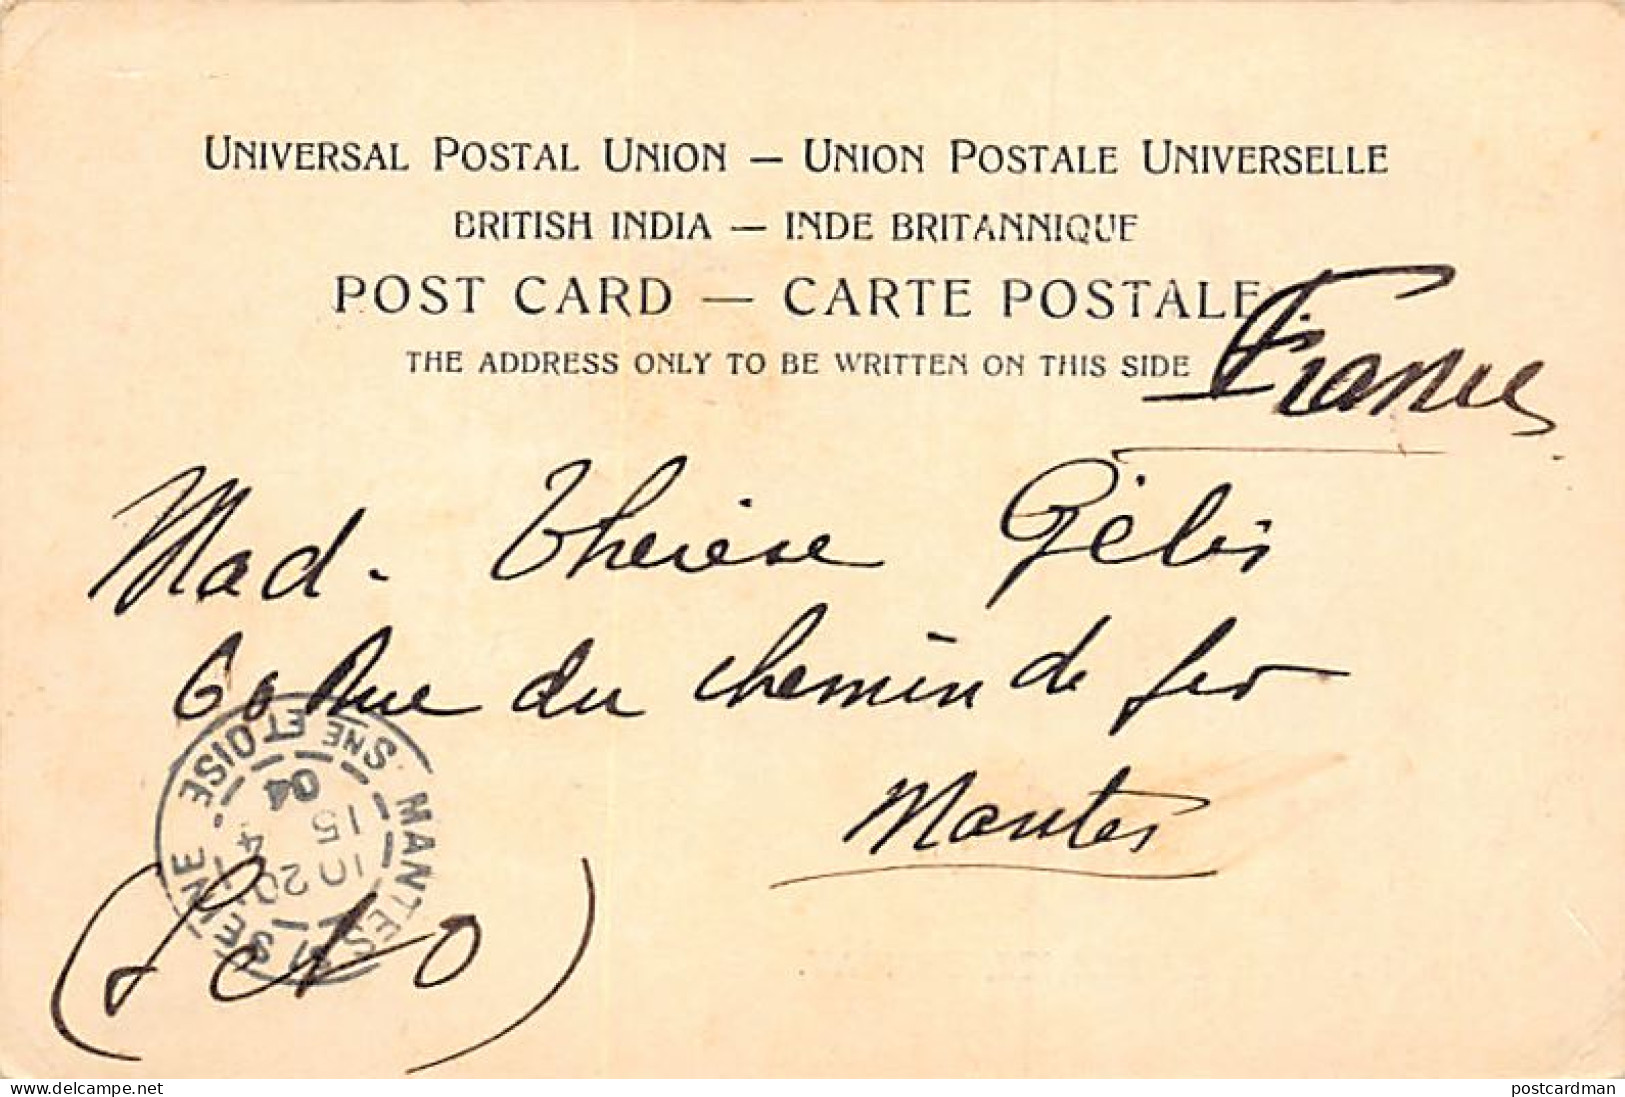 UNIVERSAL POSTAL UNION — UNION POSTALE UNIVERSELLE
BRITISH INDIA — INDE BRITANNIQUE
POST CARD — CARTE POSTALE
THE ADDRESS ONLY TO BE WRITTEN ON THIS SIDE
France
Mad. Therese Gélis
60 Rue du chemin de fer
Mantes
(S et O)
MANTES
SNE ET OISE
SEINE
20
15
4
04
delcampe.net
postcardman